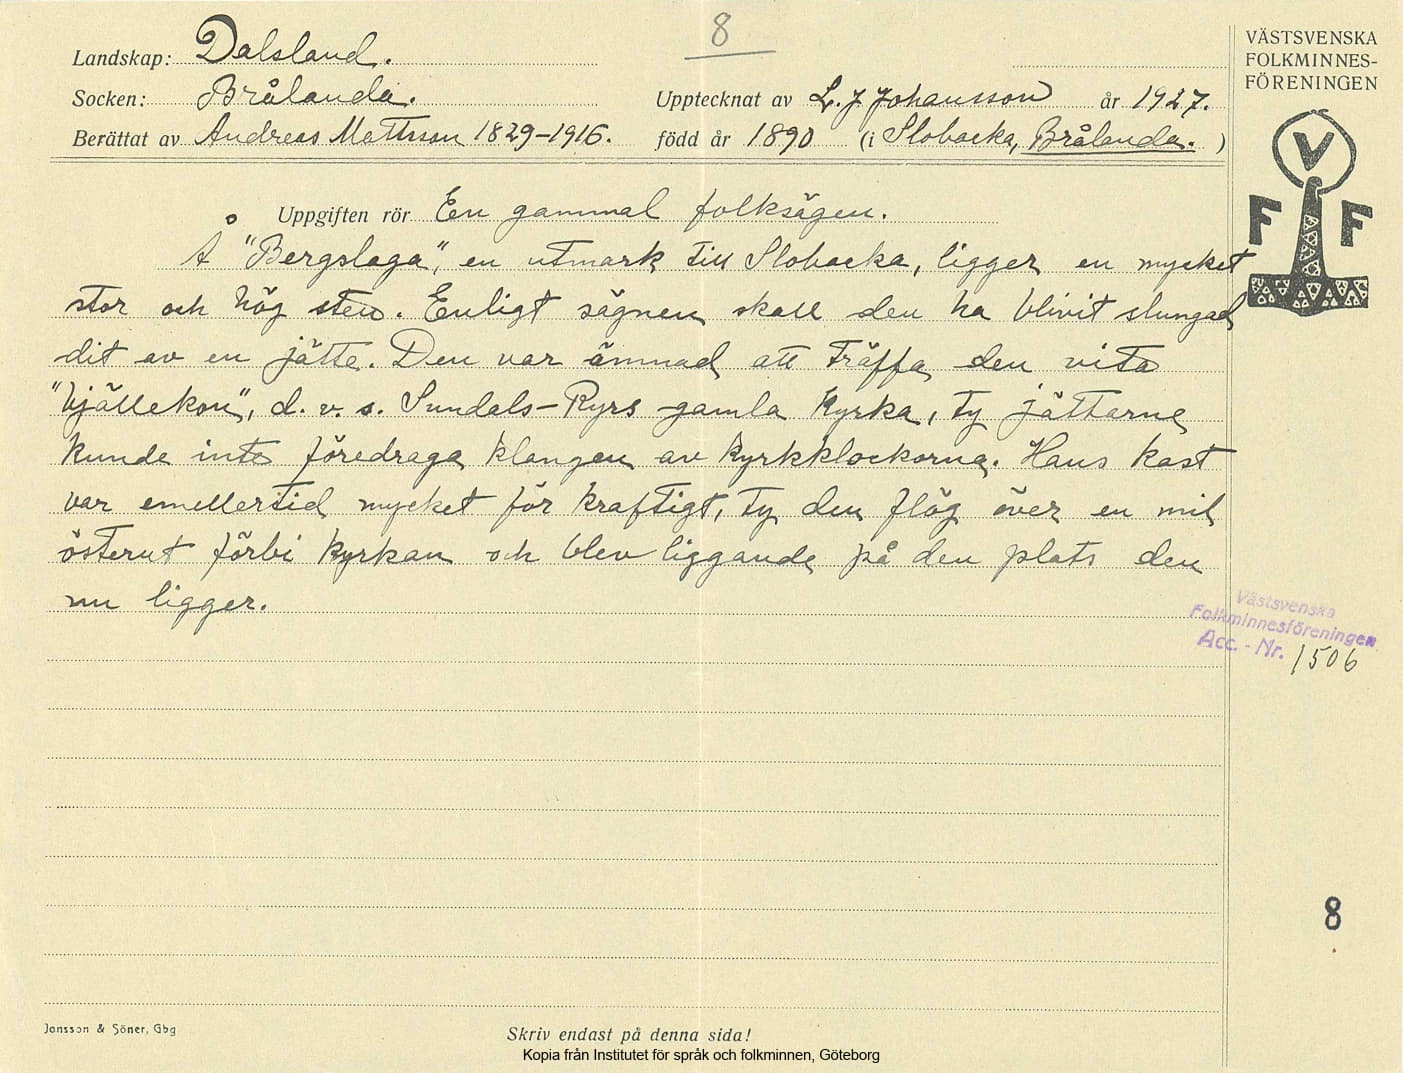 8
Landskap: Dalsland.
Socken: Brålanda.
Upptecknat av L. J. Johansson år 1927.
Berättat av Andreas Mattsson 1829-1916.
född år 1890 (i Slobacka, Brålanda.)
VÄSTSVENSKA
FOLKMINNES-
FÖRENINGEN
V
F F
Uppgiften rör En gammal folksägen.
Å "Bergslaga", en utmark till Slobacka, ligger en mycket
stor och hög sten. Enligt sägnen skall den ha blivit slungad
dit av en jätte. Den var ämnad att träffa den vita
"bjällekon", d.v.s. Sundals-Ryrs gamla kyrka, ty jättarne
kunde inte föredraga klangen av kyrkklockorna. Hans kast
var emellertid mycket för kraftigt, ty den flög över en mil
österut förbi kyrkan och blev liggande på den plats den
nu ligger.
Västsvenska
Folkminnesföreningen
Acc. - Nr. 1506
8
Jonsson & Söner, Gbg
Skriv endast på denna sida!
Kopia från Institutet för språk och folkminnen, Göteborg